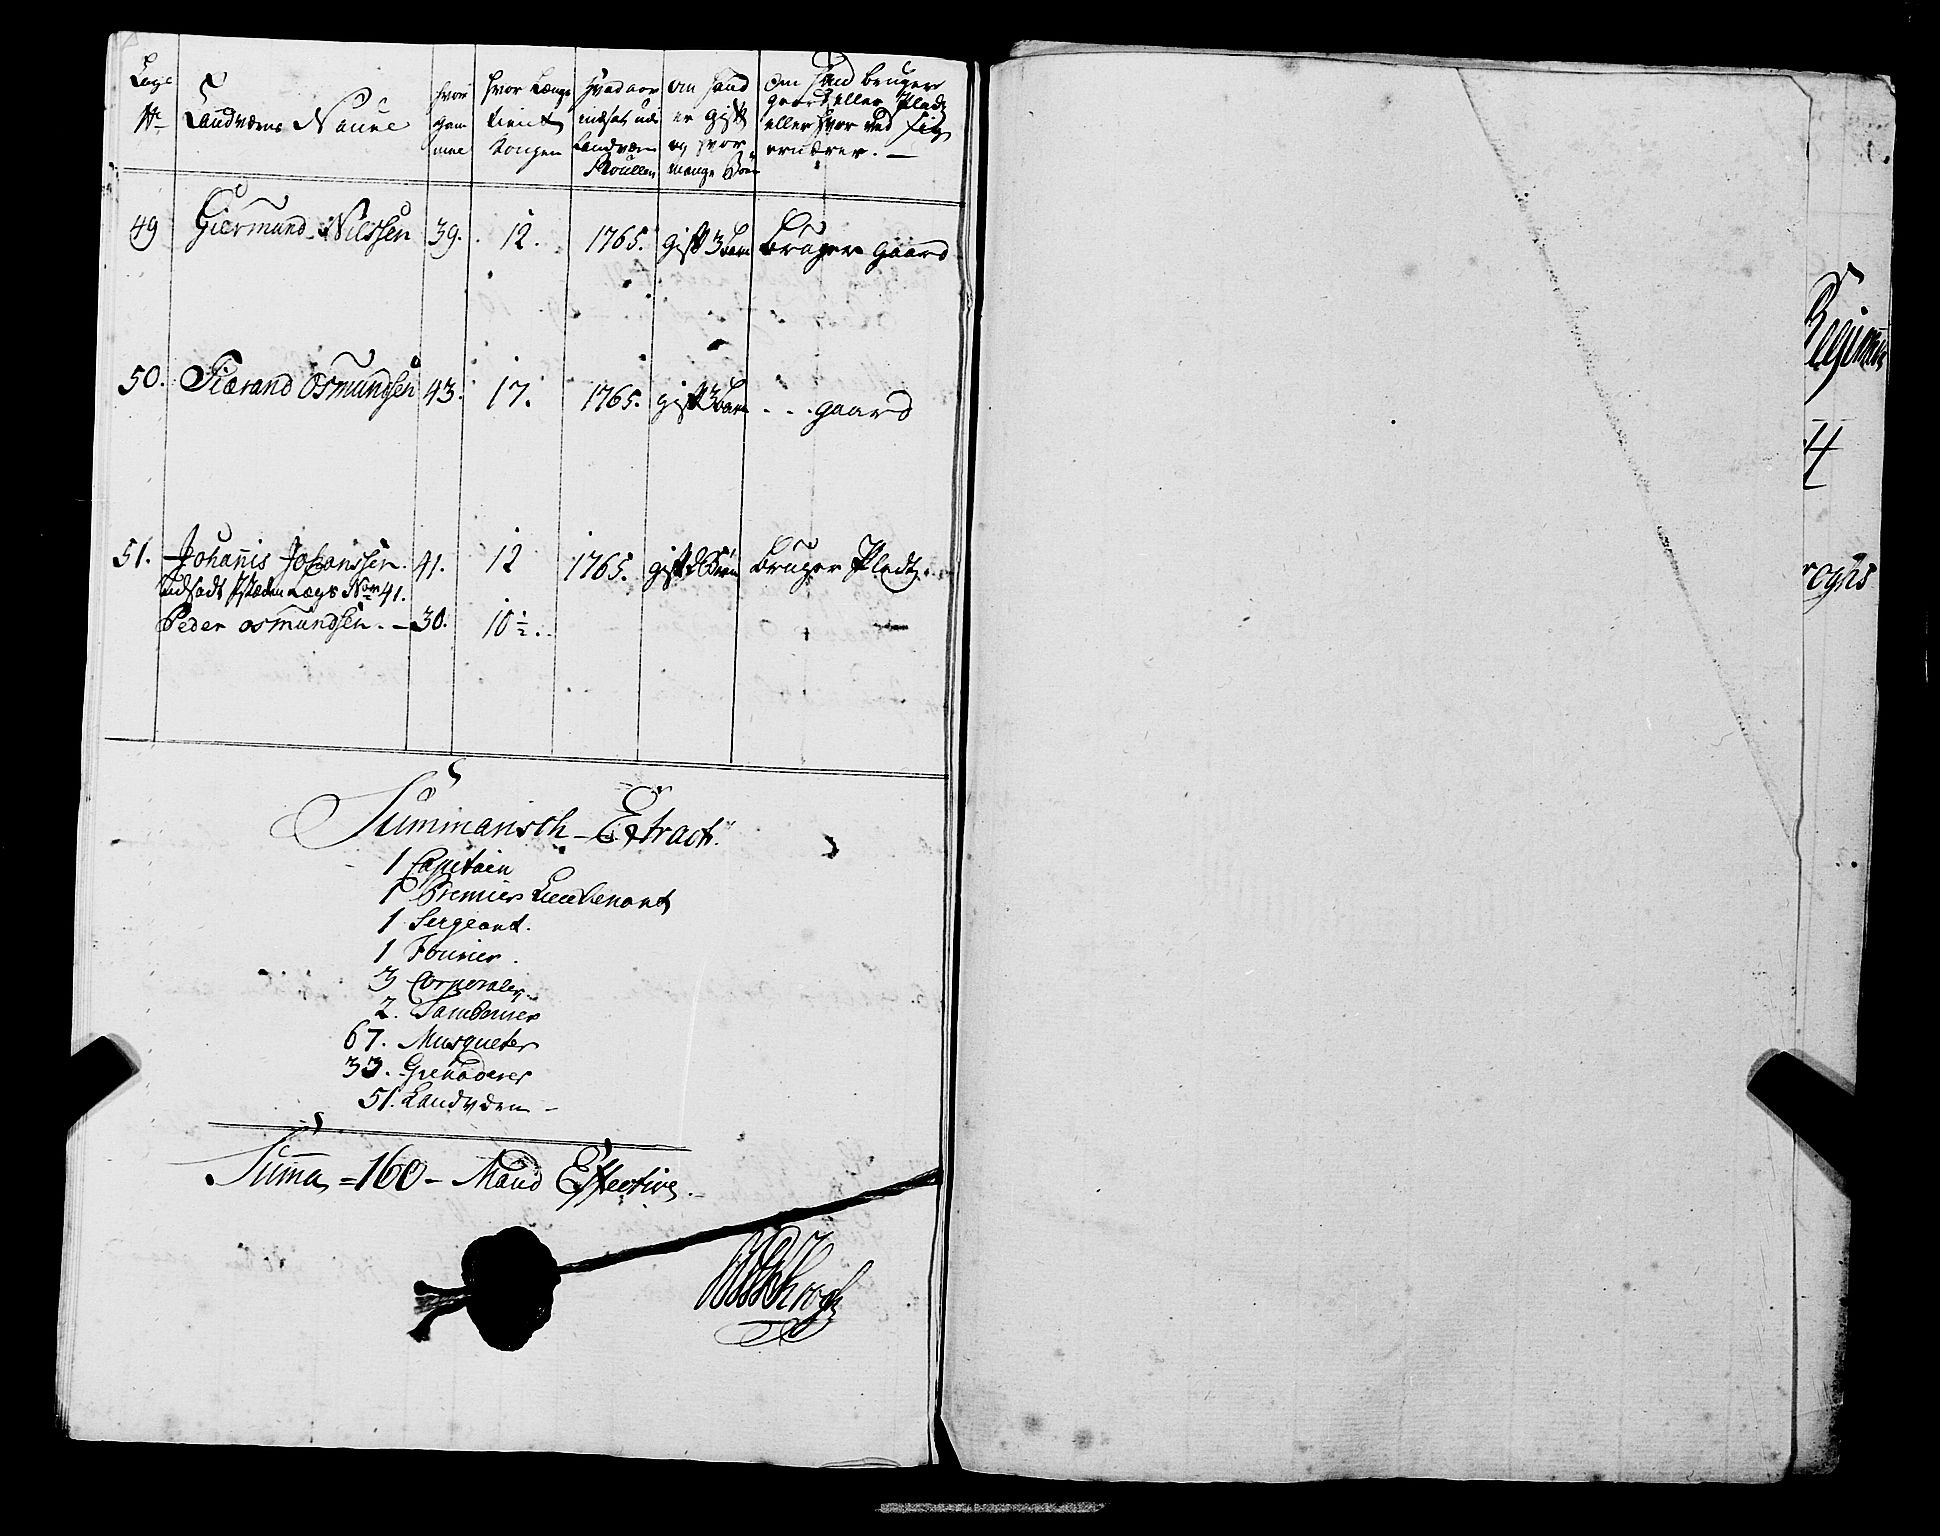 Legs Nr
Landværns Naune
hvor gam mel
hvor Længe tient Kongen
Hvad aar indsat udi Landværn Roullen
om hand er gift og hvor mange Børn
Om hand bruger gaard eller Pladtz eller hvor ved sig ernærer.
49 Giermund Nilssen 39. 12. 1765. gift 3 Barn Bruger gaard
50. Tiærand Osmundsen 43. 17. 1765. gift 3 barn - - - gaard
51. Johannis Johanssen. 41. 12 1765. gift Børn Bruger Pladtz.
Udsadt Jstæden Legs No 41.
Peder osmundsen. - 30. 10 ½.
Summarisch Extract.
1 Capitain
1 Premier Lieutenant
1 Sergeant.
1 Fourier.
3 Corporaler
2. Tambourer
67. Musqueter
33. Grenaderer
51. Landværn -
Summa = 160 - Mand Effective.
Krogh
Regim
4
roghs